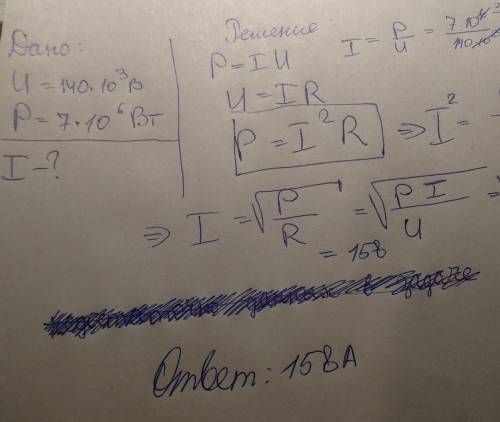 Дано:
U = 140·10³ В
P = 7·10⁶ Вт
I – ?
Решение
P = I U
I = P/U = 7·10⁶/140·10³
U = I R
P = I² R ⇒ I² =
⇒ I = √(P/R) = √(P I/U) =
= 158
Ответ: 158 А